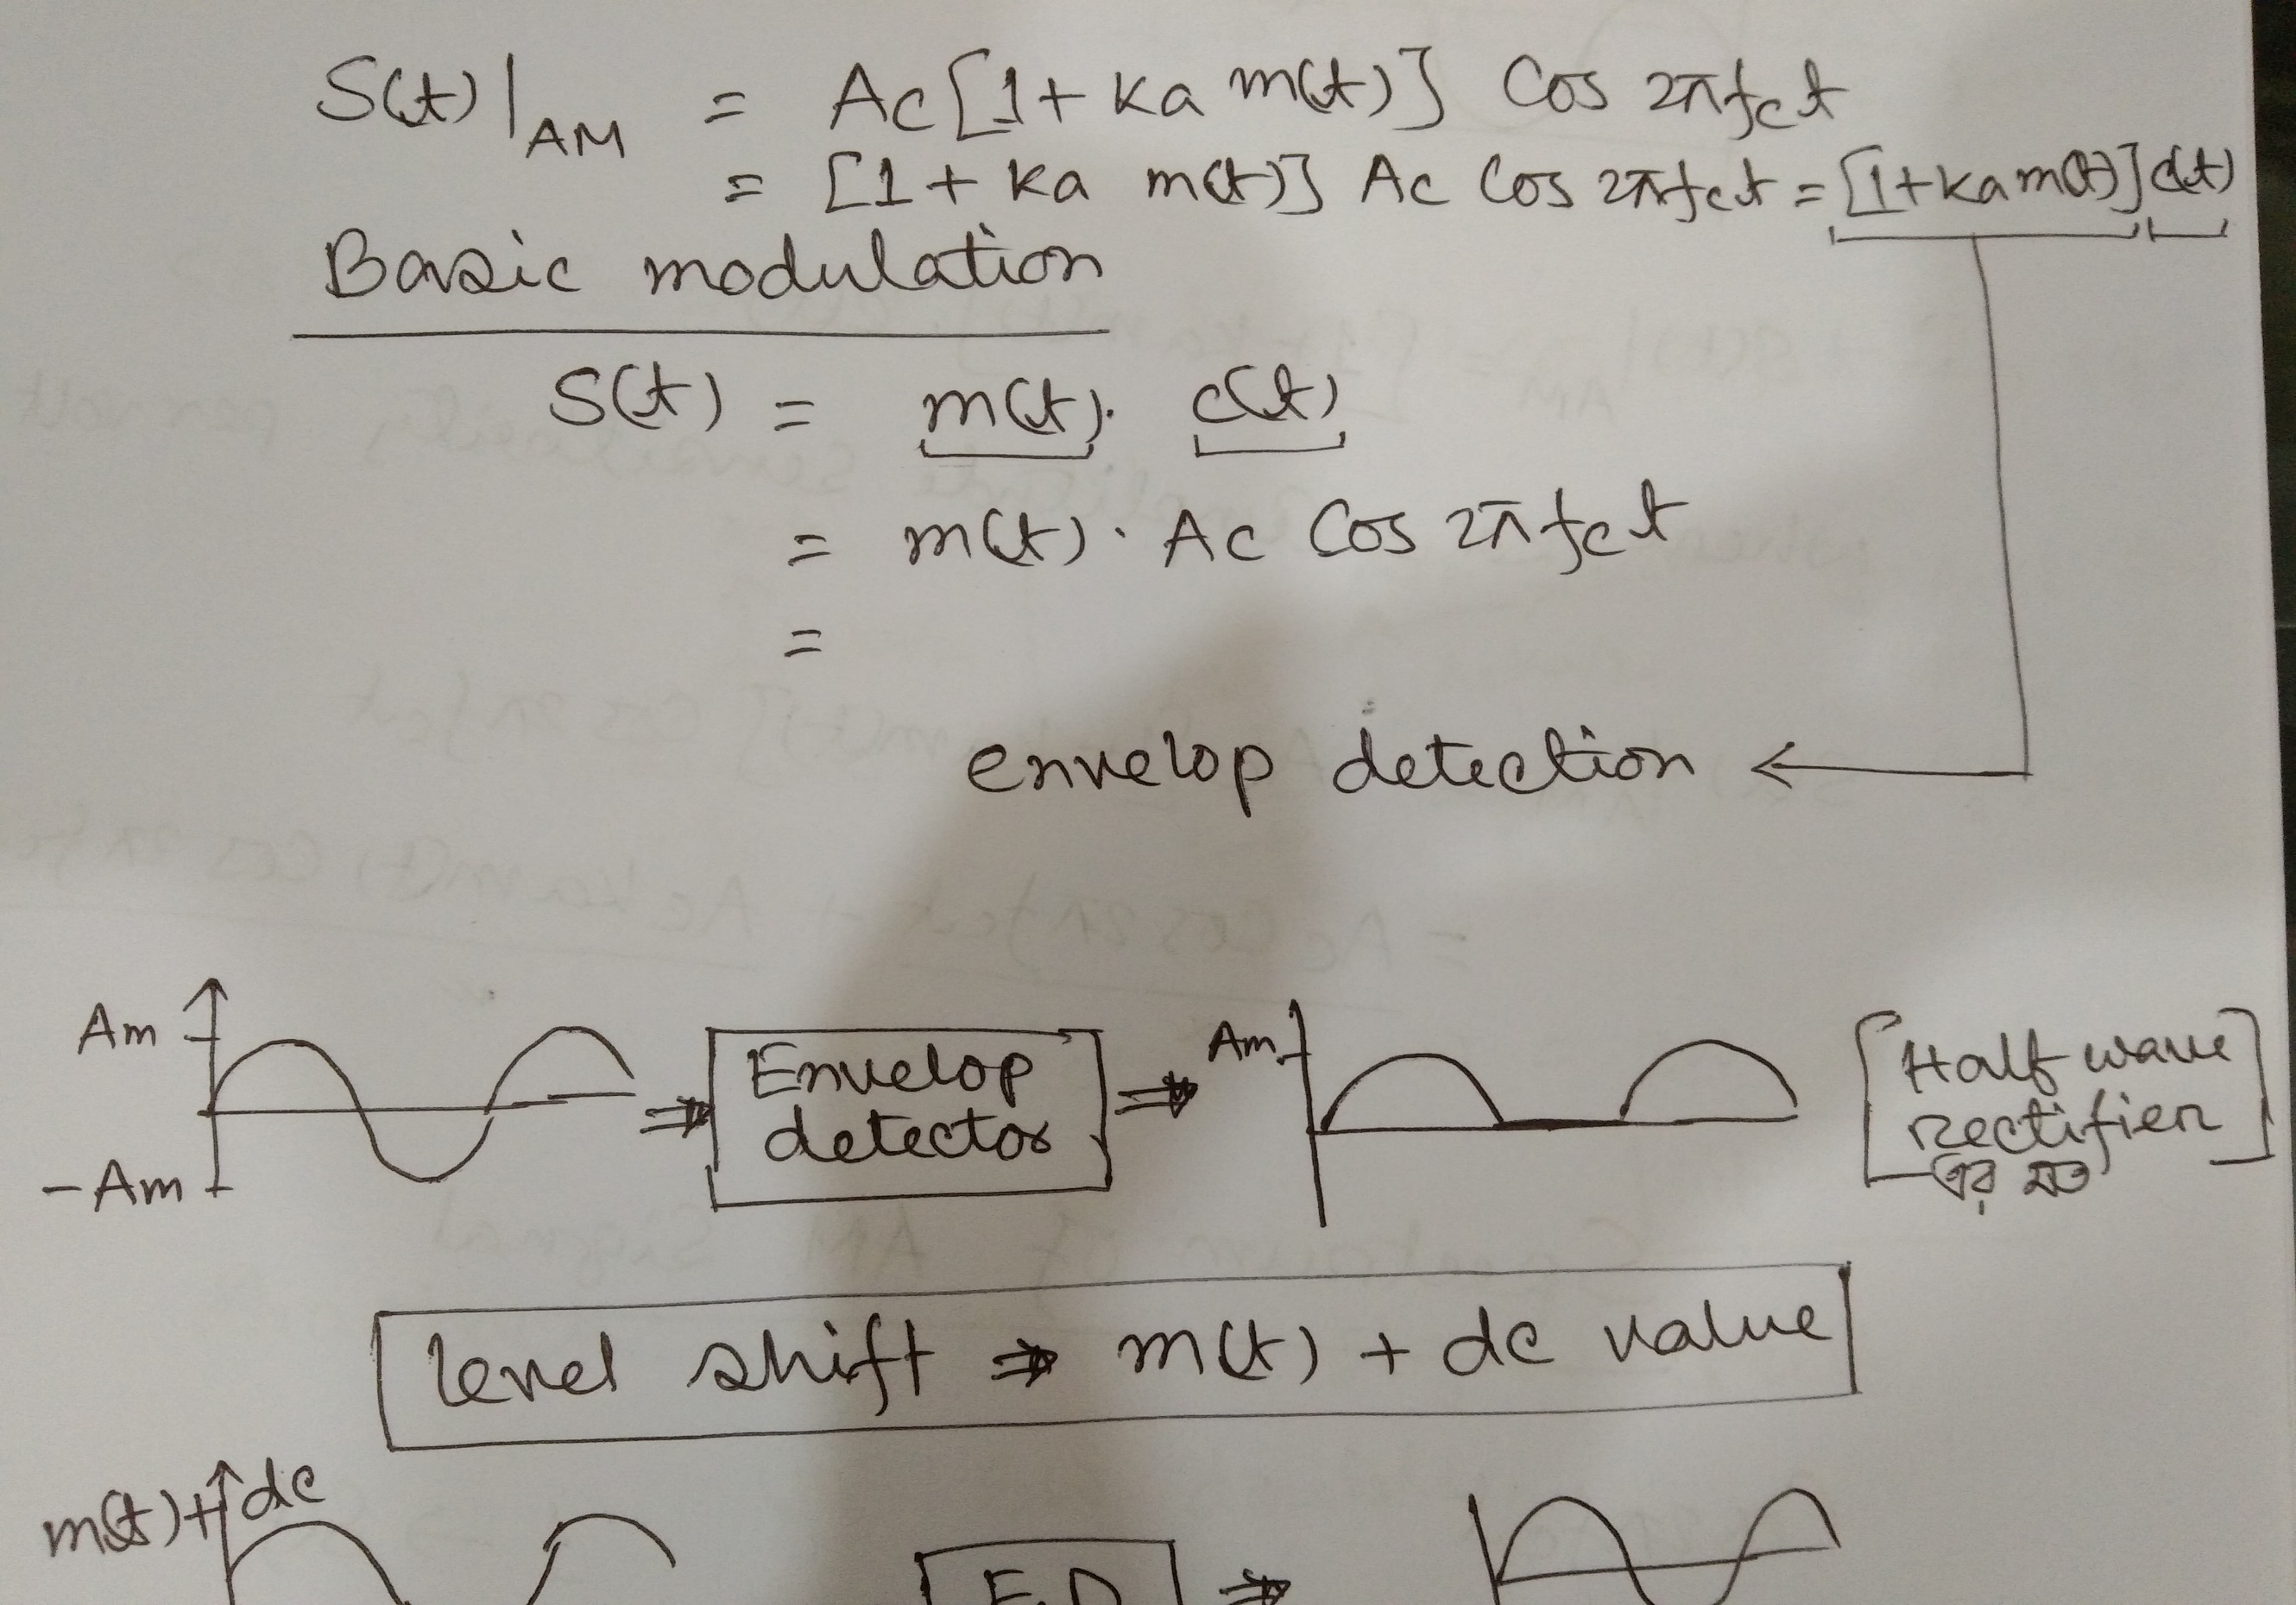 S(t)|AM = Ac[1+ka m(t)] Cos 2πfct
= [1+ka m(t)] Ac Cos 2πfct = [1+ka m(t)] c(t)
Basic modulation
S(t) = m(t). c(t)
= m(t) . Ac Cos 2πfct
=
envelop detection ←
Am
-Am
⇒ Envelop detector ⇒
Am
[Half wave rectifier এর মত]
level shift ⇒ m(t) + dc value
m(t)+dc
E.D ⇒